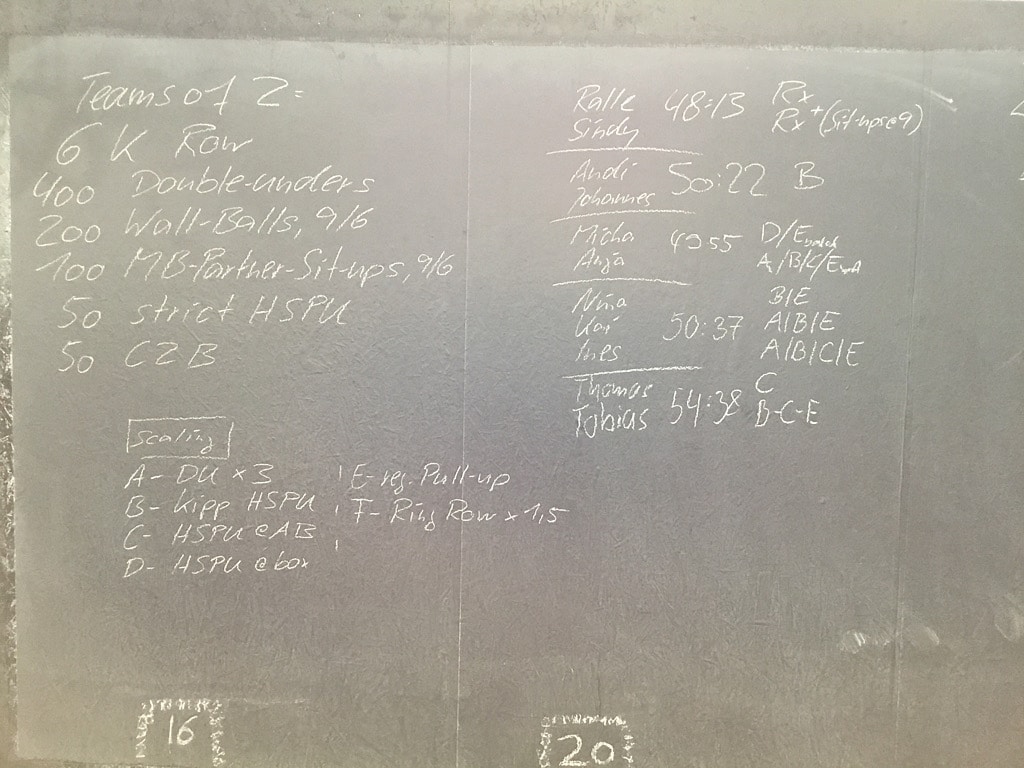 Teams of 2:
6 K Row
400 Double-unders
200 Wall-Balls, 9/6
100 MB-Partner-Sit-ups, 9/6
50 strict HSPU
50 C2B
Scaling
A- DU x 3
B- Kipp HSPU
C- HSPU @ AB
D- HSPU @ box
E- reg. Pull-up
F- Ring Row x 1,5
Ralle 48:13 Rx
Sindy Rx+ (Sit-ups@9)
Andi 50:22 B
Johannes
Micha 49:55 D/E
Anja A/B/C/E
Nina B/E
Kai 50:37 A/B/E
Ines A/B/C/E
Thomas 54:38 C
Tobias B-C-E
16
20